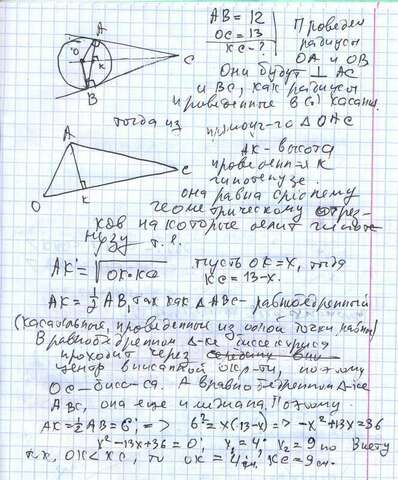 A
O
K
B
C
AB = 12
OC = 13
KC - ?
Проведем
радиусы
OA и OB
Они будут ⊥ AC
и BC, как радиусы
проведенные в (·) касания.
тогда из прямоуг-го △OAC
A
O
K
C
AK - высота
проведенная к
гипотенузе.
она равна среднему
геометрическому отрез-
ков на которые делит гипоте-
нузу т.е.
AK = √OK·KC пусть OK = x, тогда
KC = 13-x.
AK = 1/2 AB, так как △ABC - равнобедренный
(касательные, проведенные из одной точки равны)
В равнобедренном △-ке биссектриса
проходит через
центр вписанной окр-ти, поэтому
OC - бисс-са. А в равнобедренном △-ке
ABC, она еще и медиана. Поэтому
AK = 1/2 AB = 6; => 6² = x(13-x) => -x²+13x=36
x²-13x+36=0; x₁=4; x₂=9 по Виету
т.к. OK<KC, то OK = 4см. KC = 9см.